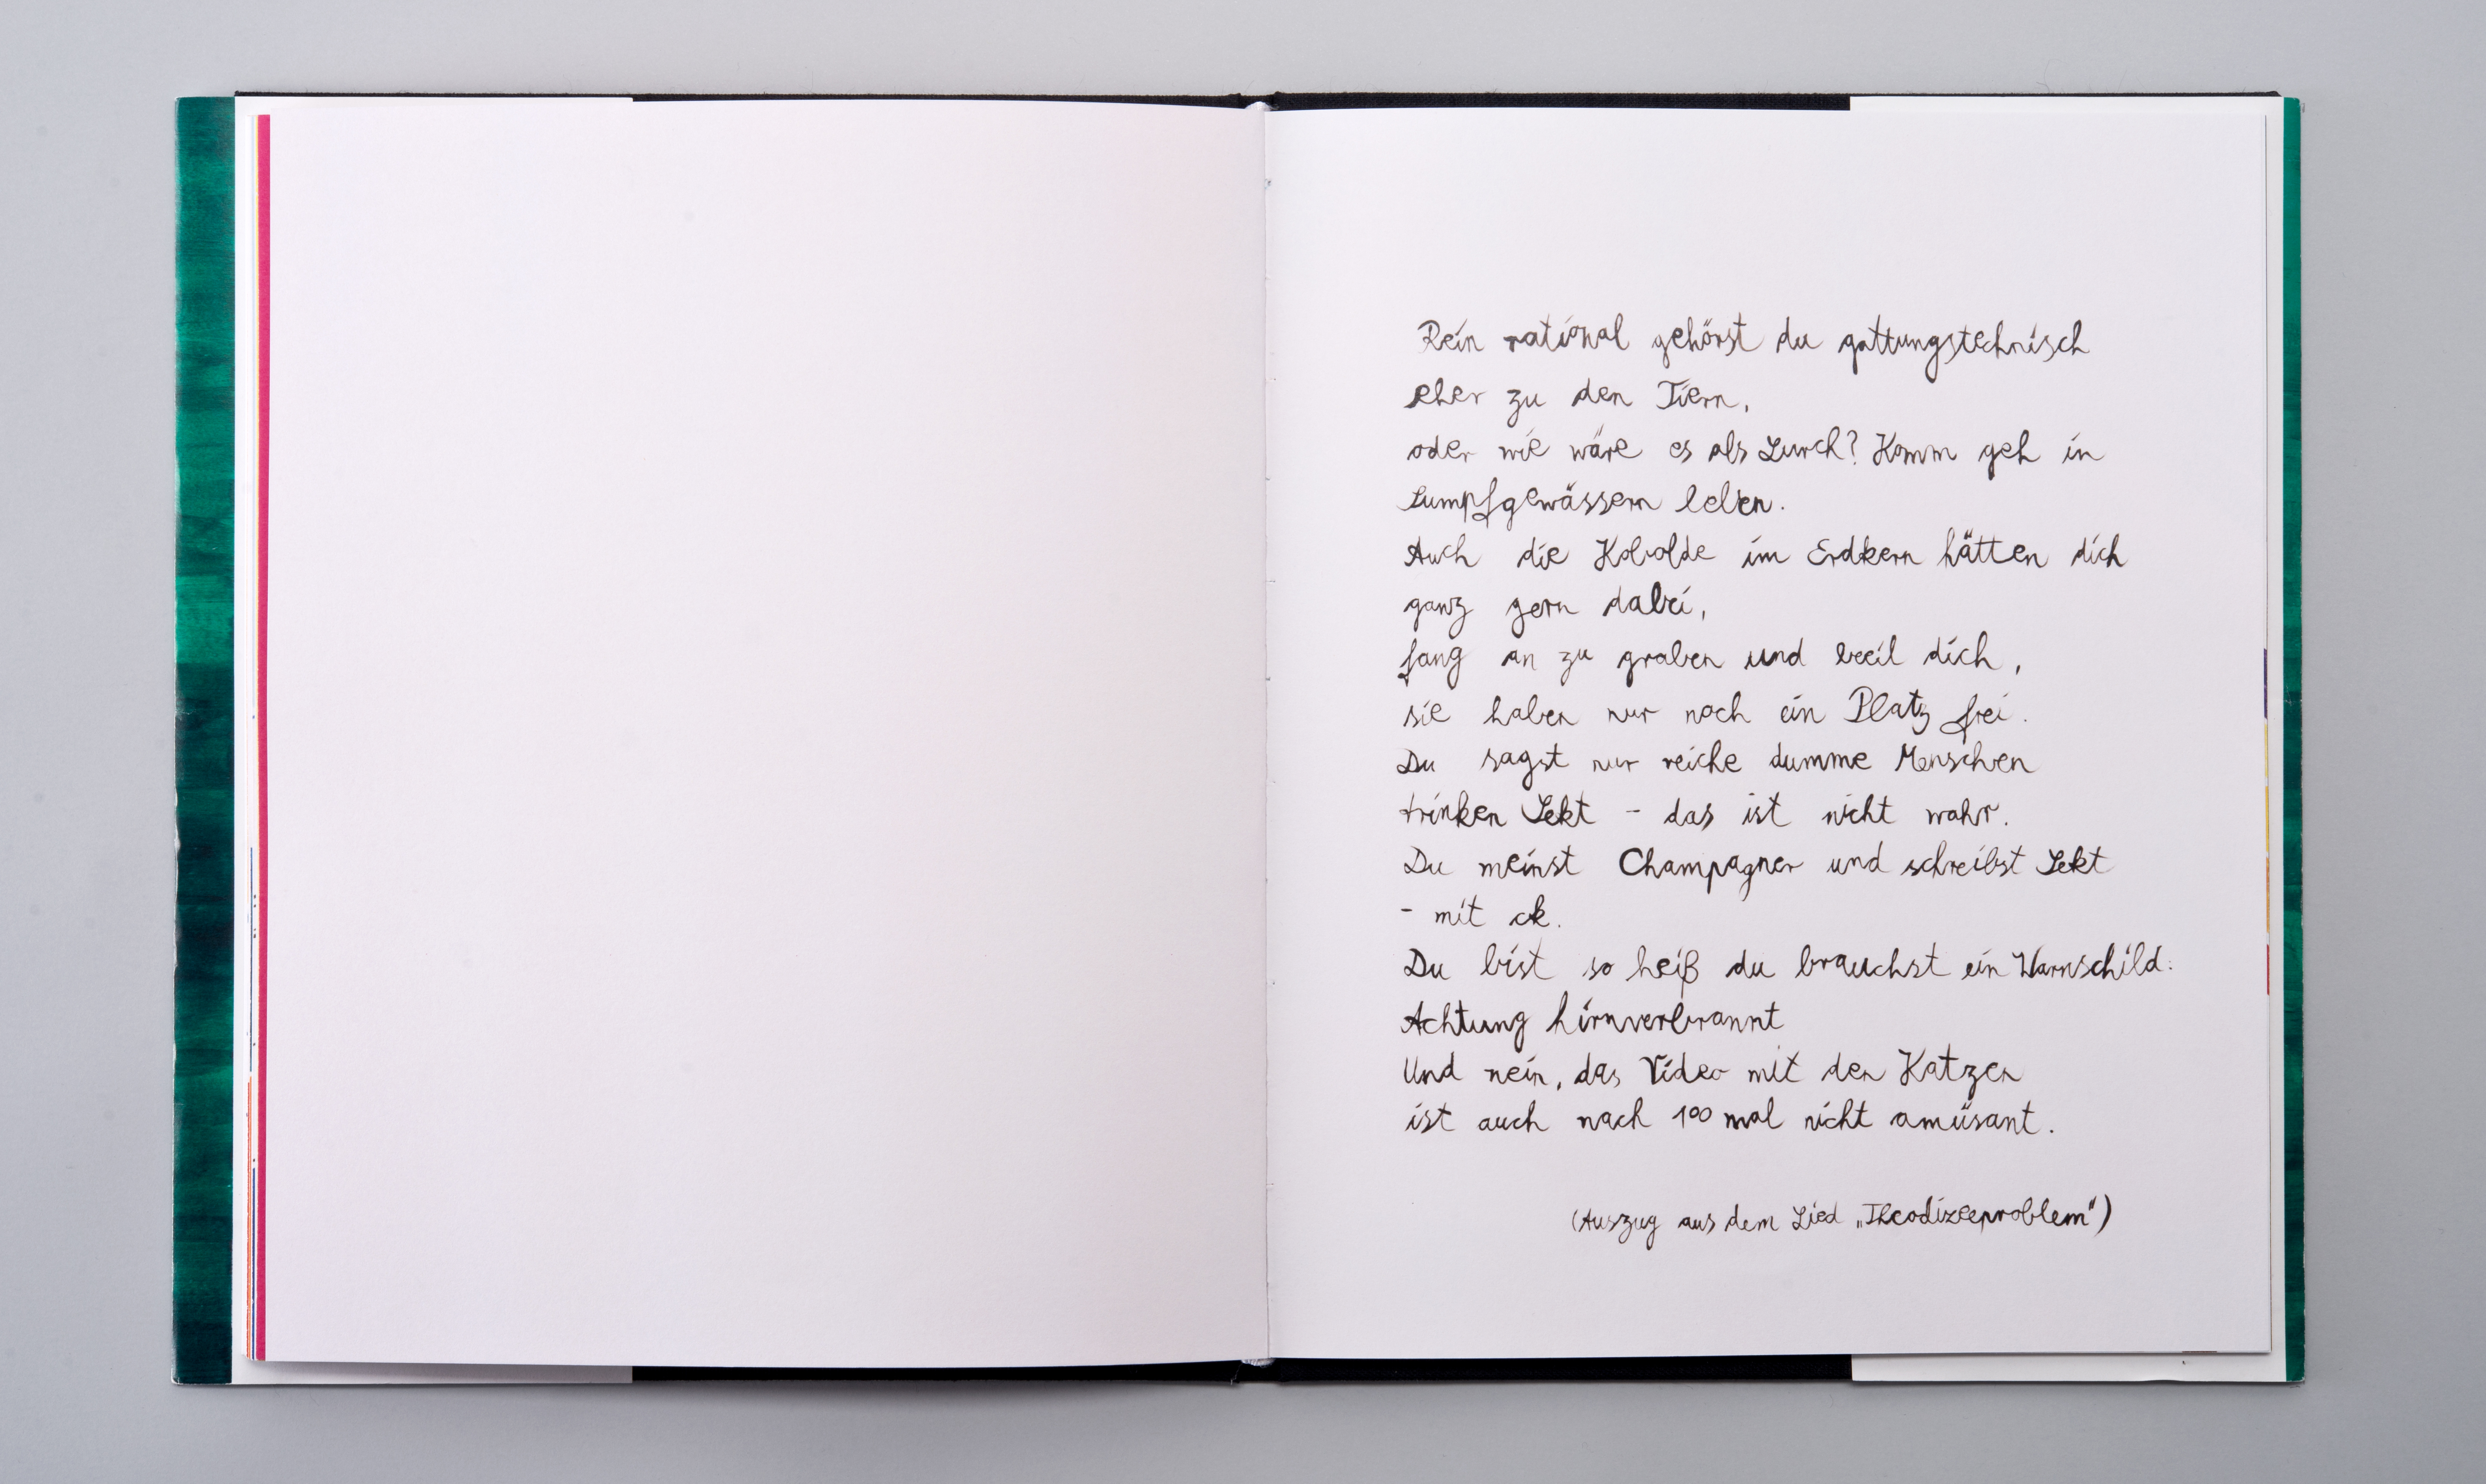 Rein rational gehörst du gattungstechnisch
eher zu den Tiern,
oder wie wäre es als Lurch? Komm geh in
Sumpfgewässern leben.
Auch die Kobolde im Erdkern hätten dich
ganz gern dabei,
fang an zu graben und beeil dich,
sie haben nur noch ein Platz frei.
Du sagst nur reiche dumme Menschen
trinken Sekt - das ist nicht wahr.
Du meinst Champagner und schreibst Sekt
- mit ck.
Du bist so heiß du brauchst ein Warnschild:
Achtung hirnverbrannt
Und nein, das Video mit den Katzen
ist auch nach 100 mal nicht amüsant.
(Auszug aus dem Lied „Theodizeeproblem")